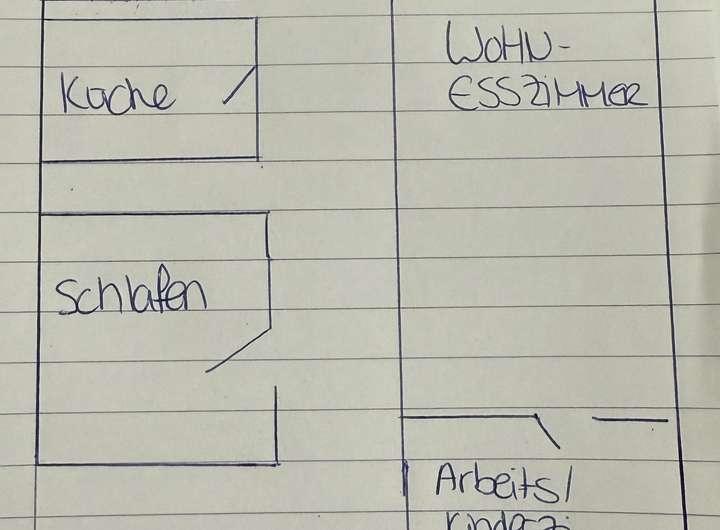 Küche
WOHN-
ESSZIMMER
Schlafen
Arbeits/